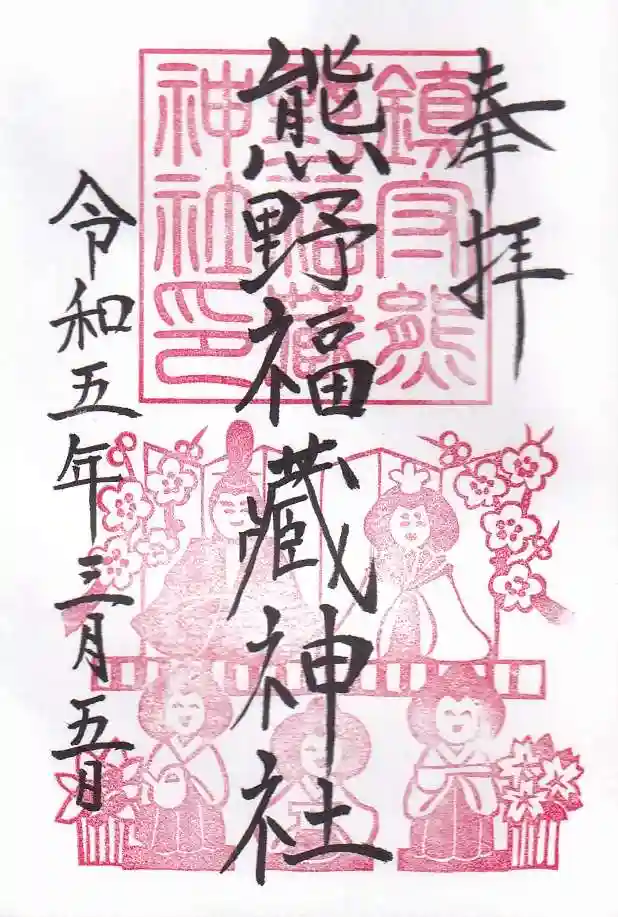 奉拝
熊野福藏神社
令和五年三月五日
鎮守熊
野福藏
神社印